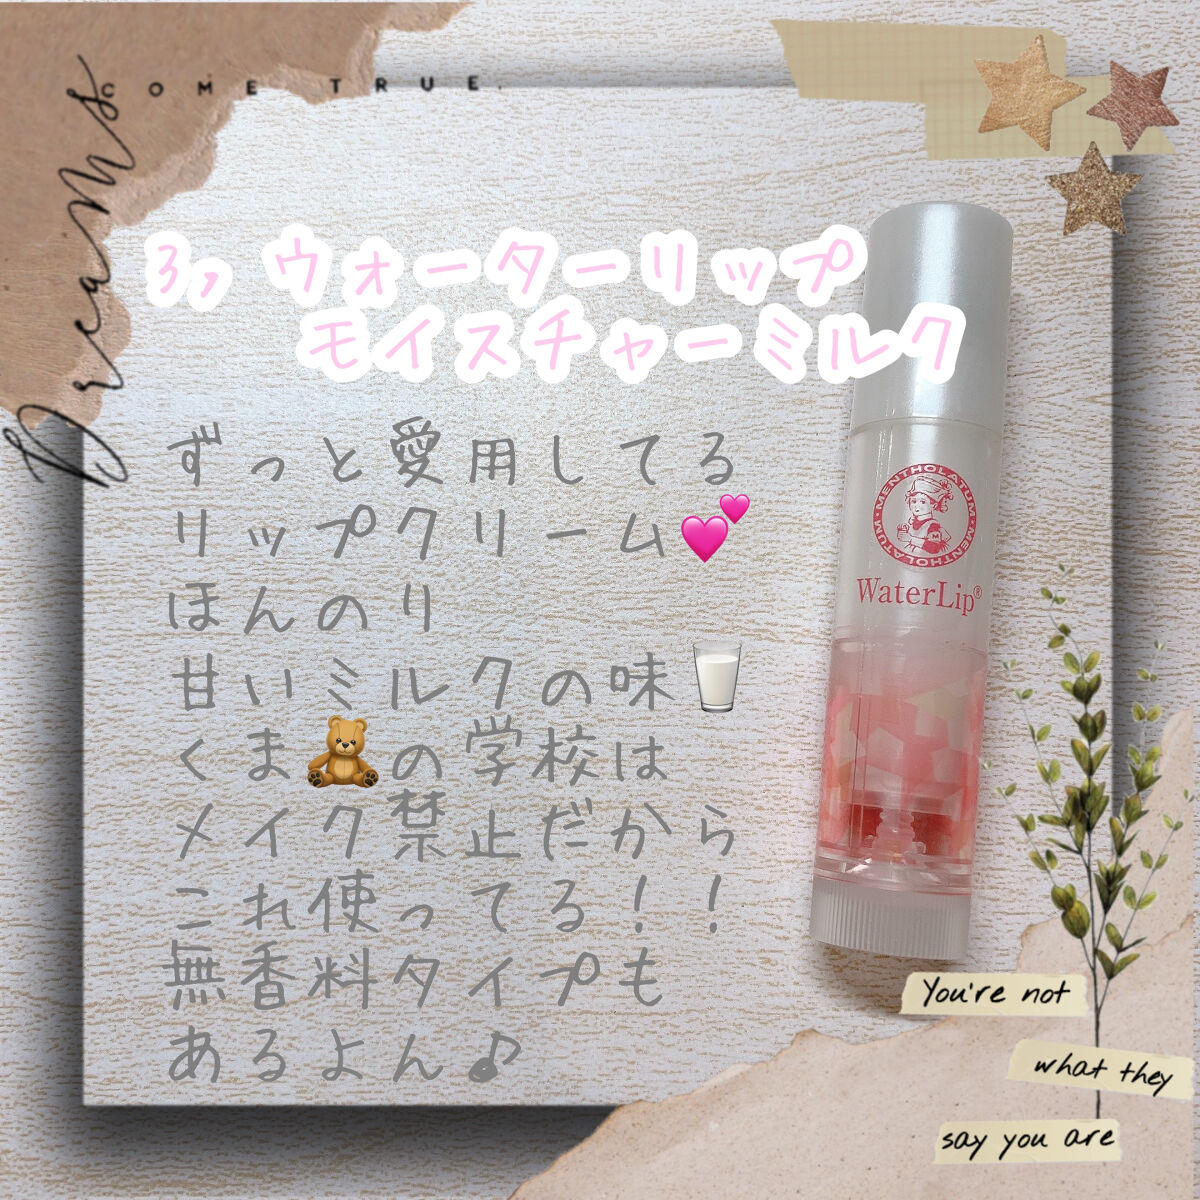 COME TRUE.
Dreams
3, ウォーターリップ
モイスチャーミルク
ずっと愛用してる
リップクリーム💕
ほんのり
甘いミルクの味🥛
くま🧸の学校は
メイク禁止だから
これ使ってる！！
無香料タイプも
あるよん♪
MENTHOLATUM・MENTHOLATUM・MENTHOLATUM
WaterLip®
You're not
what they
say you are